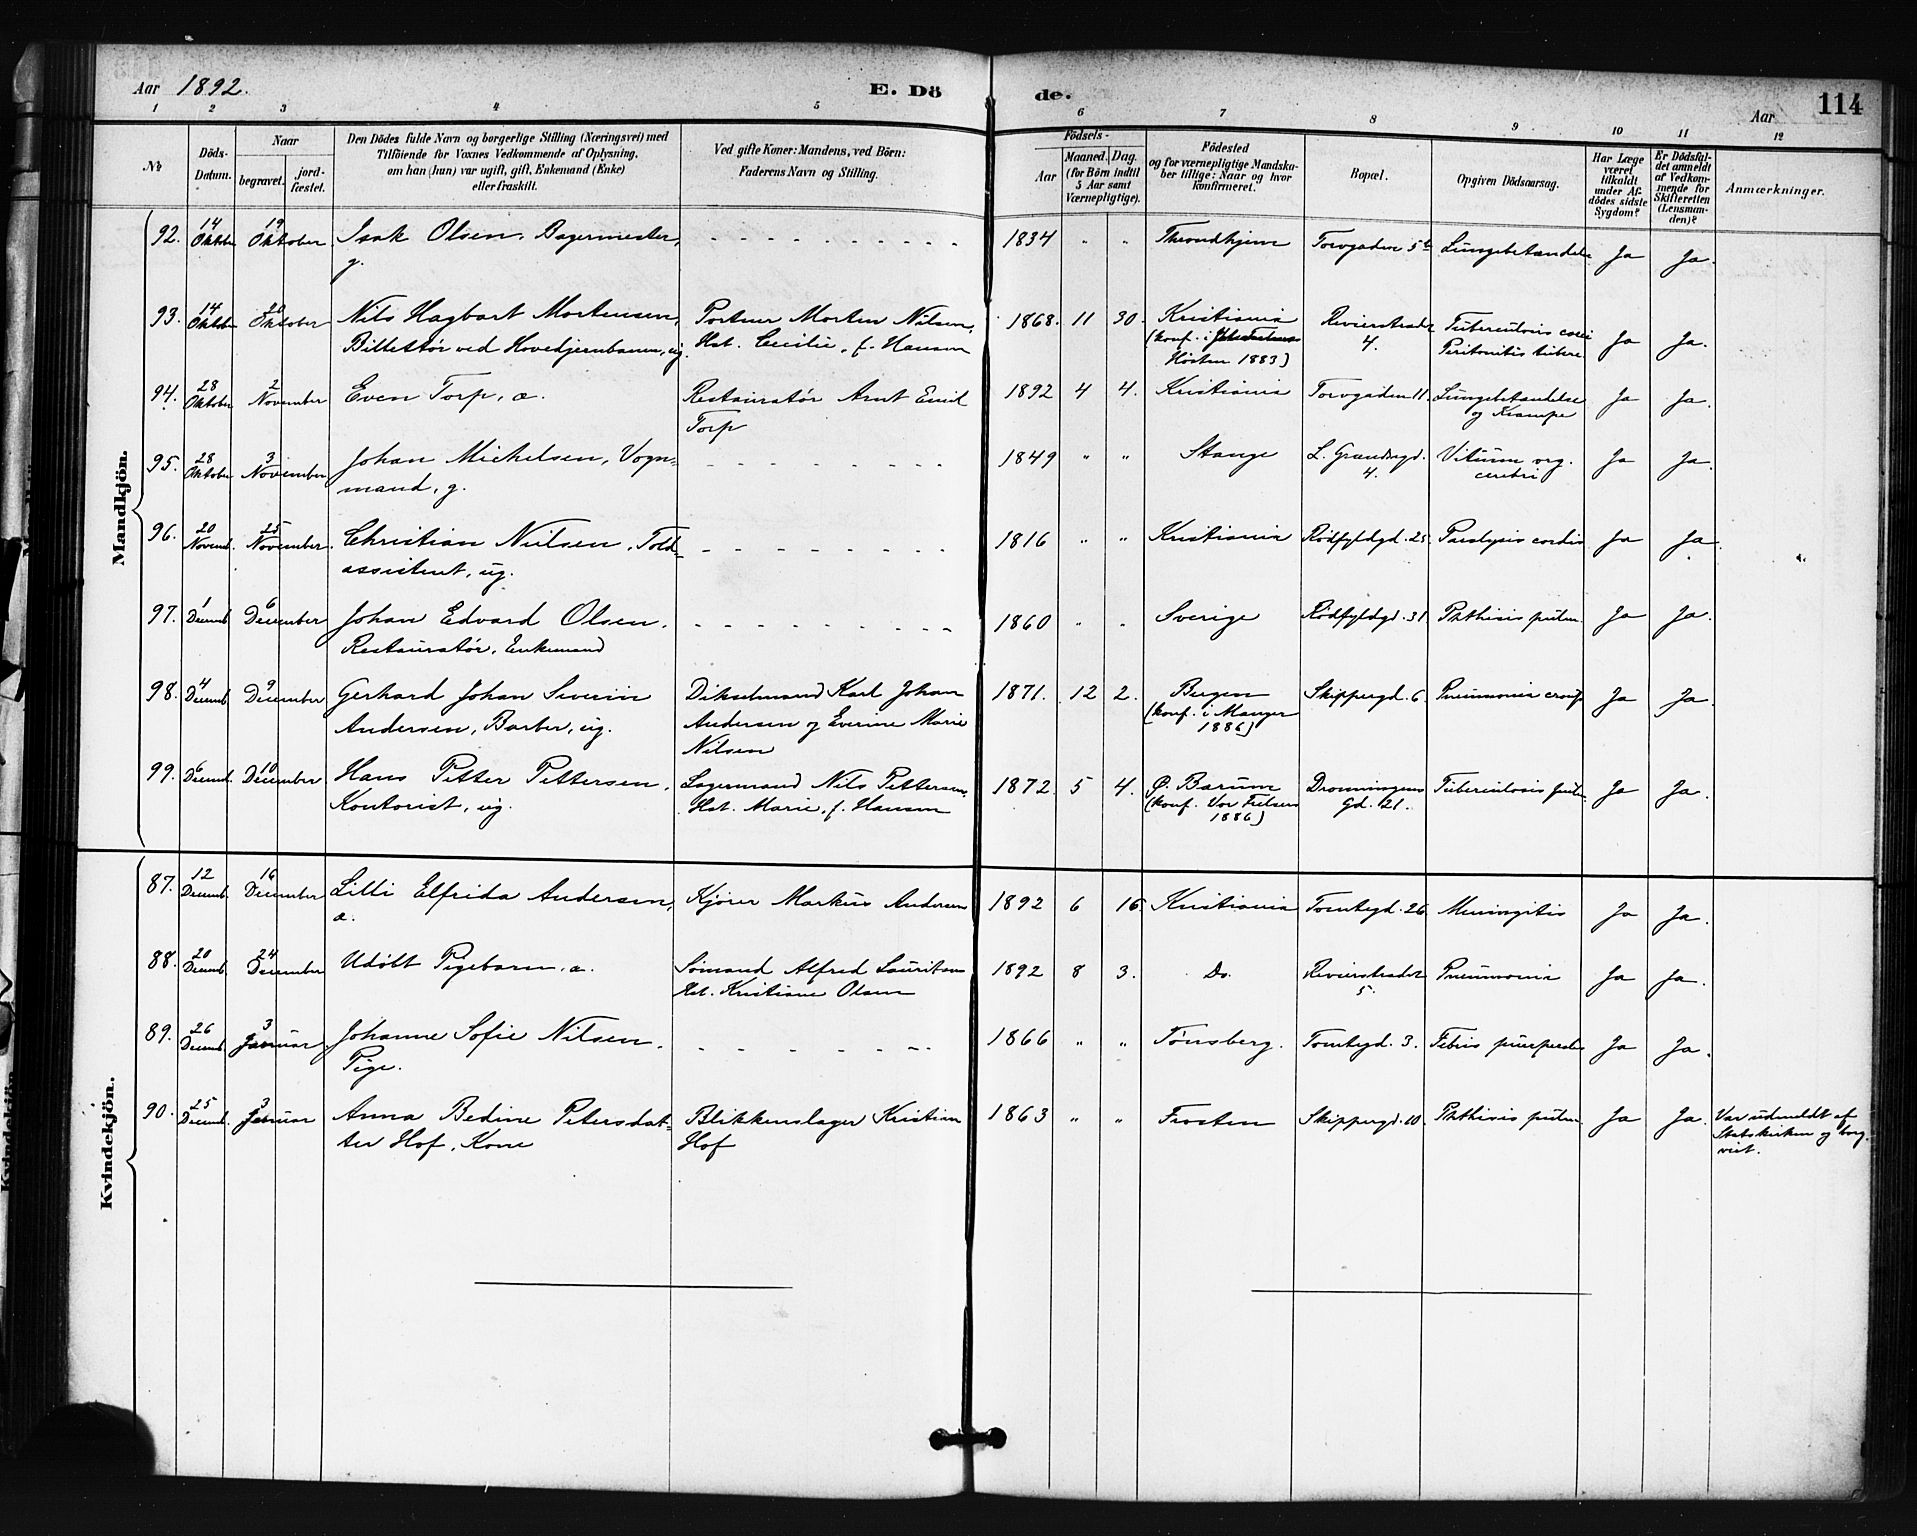 Aar 1892.
E. Dö
de.
Aar
114
1 2 3 4 5 6 7 8 9 10 11 12
№
Döds-Datum.
Naar
begravet.
jord-fæstet.
Den Dödes fulde Navn og borgerlige Stilling (Næringsvei) med
Tilföiende for Voxnes Vedkommende af Oplysning,
om han (hun) var ugift, gift, Enkemand (Enke)
eller fraskilt.
Ved gifte Koner: Mandens, ved Börn:
Faderens Navn og Stilling.
Födsels-
Aar
Maaned. Dag.
(for Börn indtil
5 Aar samt
Værnepligtige).
Födested
og for værnepligtige Mandska-
ber tillige: Naar og hvor
konfirmeret.
Bopæl.
Opgiven Dödsaarsag.
Har Læge
været
tilkaldt
under Af-
dödes sidste
Sygdom?
Er Dödsfal-
det anmeldt
af Vedkom-
mende for
Skifteretten
(Lensman-
den)?
Anmærkninger.
Mandkjön.
92. 14 Oktober 19 Oktober Isak Olsen, Bagermester, 1834 " " Throndhjem Torvgaden 5b Lungebetændelse Ja Ja.
g.
93. 14 Oktober 20 Oktober Nils Hagbart Mortensen, Portner Morten Nilsen, 1868. 11 30. Kristiania Revierstrædet Tuberculosis Ja Ja.
Billettør ved Hovedjernbanen, ug. Hst. Cecilie, f. Hansen (konf. i 4. Peritonitis
Høsten 1883)
94. 28 Oktober 2 November Even Torp, a. Restauratør Arnt Emil 1892 4 4. Kristiania Torvgaden 11. Lungebetændelse Ja Ja.
Torp og Krampe
95. 28 Oktober 3 November Johan Michelsen, Vogn- 1849 " " Stange L. Grændsegd. Vitium org. Ja Ja.
mand, g. 4. cerebri
96. 20 Novemb. 25 November. Christian Nielsen, Told- 1816 " " Kristiania Rødfyldgd. 25 Paralysis cordis Ja Ja.
assistent, ug.
97. 1 Decemb. 6 December Johan Edvard Olsen. 1860 " " Sverige Rødfyldgd. 31 Phthisis pulm. Ja Ja.
Restauratør, Enkemand
98. 4 Decemb. 9 December Gerhard Johan Severin Dikselmand Karl Johan 1871. 12 2. Bergen Skippergd. 6 Pneumonia croup. Ja Ja.
Andersen, Barber, ug. Andersen og Everine Marie (konf. i Manger
Nilsen 1886)
99. 6 Decemb. 10 December Hans Petter Pettersen, Lagermand Nils Pettersen, 1872. 5 4. Ø. Bærum Dronningens Tuberculosis pulm. Ja Ja.
Kontorist, ug. Hst. Marie, f. Hansen (konf. Vor Frelsers gd. 21.
1886)
Kvindekjön.
87. 12 Decemb. 16 December Lilli Elfrida Andersen, Kjører Markus Andersen 1892 6 16. Kristiania Tomtegd. 26 Meningitis Ja Ja.
a.
88. 20 Decemb. 24 December Udöbt Pigebarn, a. Sömand Alfred Lauritsen 1892 8 3. Do. Revierstrædet Pneumonia Ja Ja.
Hst. Kristiane Olsen 5.
89. 26 Decemb. 3 Januar Johanne Sofie Nilsen. 1866 " " Tønsberg. Tomtegd. 3. Febris puerperalis Ja Ja.
Pige.
90. 25 Decemb. 3 Januar Anna Bedine Petersdat- Blikkenslager Kristian 1863 " " Frosten Skippergd. 10 Phthisis pulm. Ja Ja. Var udmeldt af
ter Hof, Kone Hof Statskirken og borg.
viet.